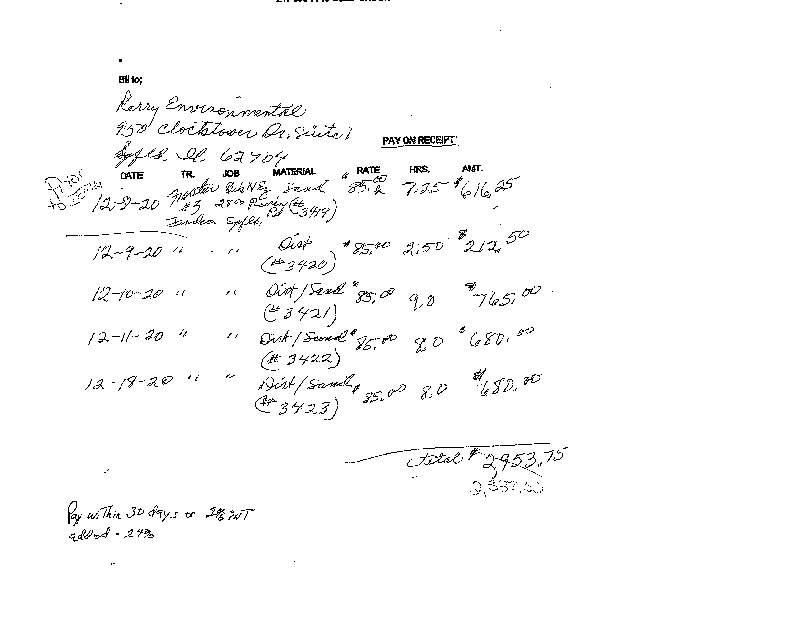 Bill to;
Environmental
950 Clocktower Dr. Suite 1
Spfld. Il. 62704
PAY ON RECEIPT
DATE TR. JOB MATERIAL RATE HRS. AMT.
12-8-20 #3 Sand 85.00 7.25 $616.25
Spfld. (#3419)
12-9-20 " " Dirt $85.00 2.50 $212.50
(#3420)
12-10-20 " " Dirt/Sand $85.00 9.0 $765.00
(#3421)
12-11-20 " " Dirt/Sand $85.00 8.0 $680.00
(#3422)
12-18-20 " " Dirt/Sand $85.00 8.0 $680.00
(#3423)
Total $2953.75
Pay within 30 days or 2% INT
added - 24%